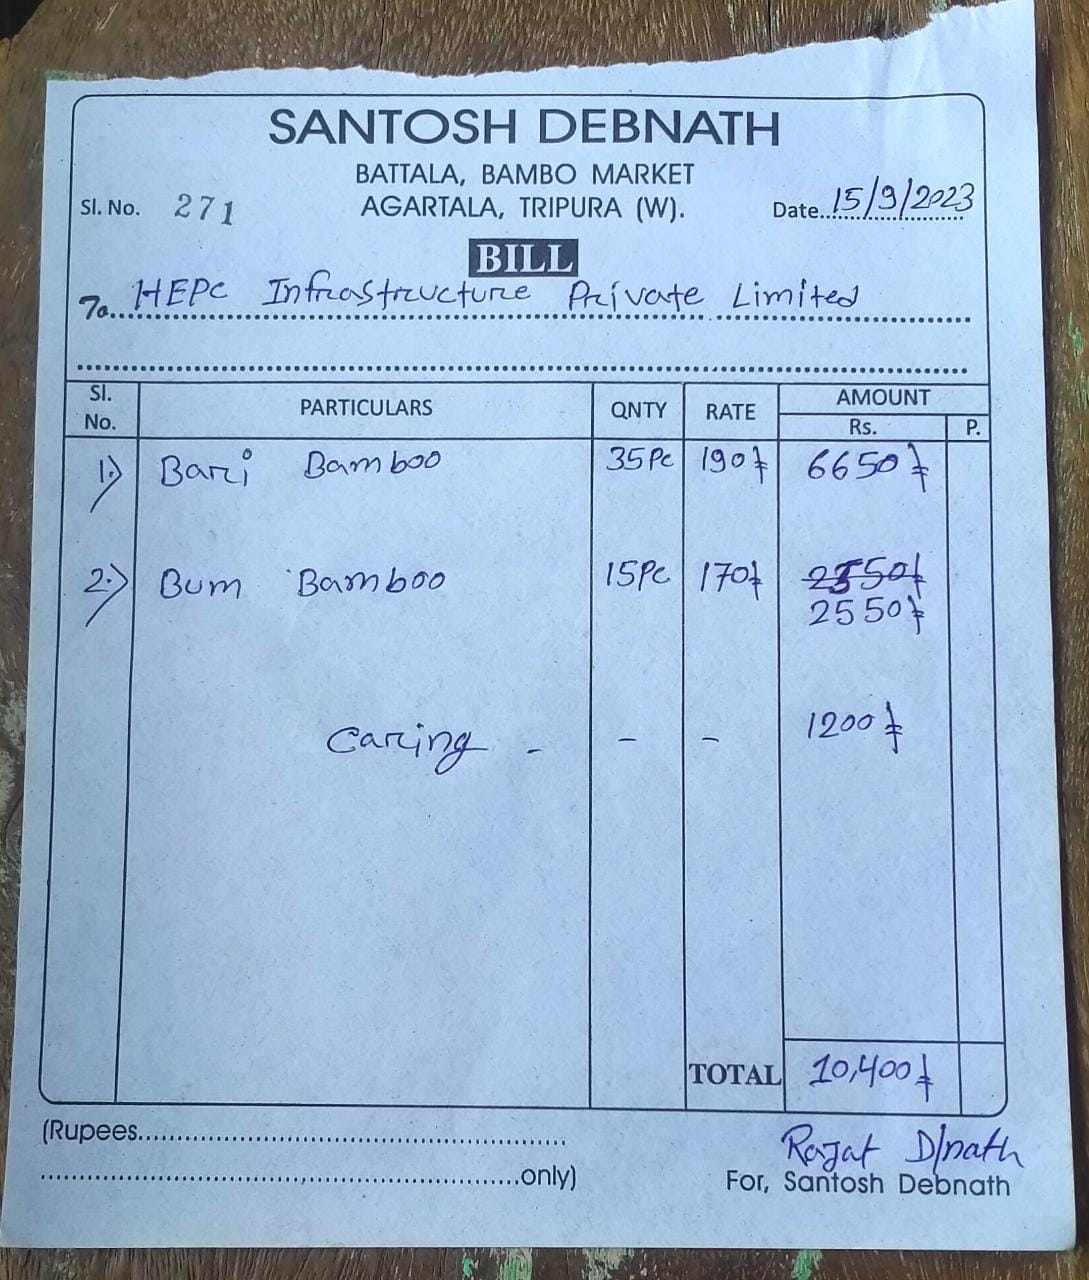 SANTOSH DEBNATH
BATTALA, BAMBO MARKET
Sl. No. 271 AGARTALA, TRIPURA (W). Date..15/9/2023
BILL
To....HEPC Infrastructure Private Limited
Sl. No. PARTICULARS QNTY RATE AMOUNT
Rs. P.
1.) Bari Bamboo 35Pc 190/- 6650/-
2.) Bum Bamboo 15Pc 170/- 2550/-
2550/-
Caring - - - 1200/-
TOTAL 10,400/-
(Rupees....................................................
....................................................only)
Rajat D/nath
For, Santosh Debnath